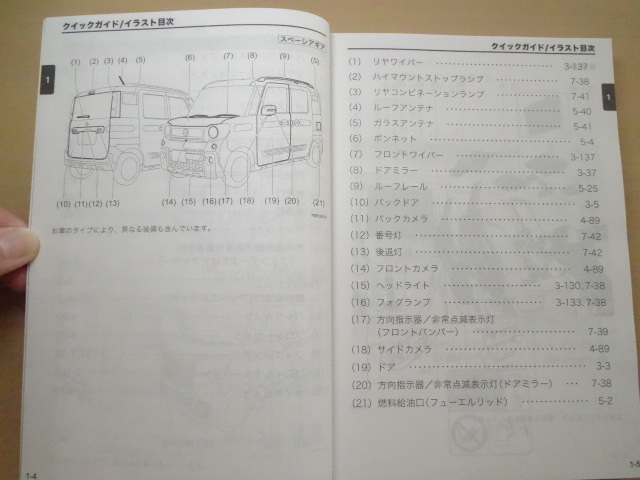 クイックガイド/イラスト目次
スペーシアギア
1
(1) (2) (3) (4) (5) (6) (7) (8) (9) (5)
(10) (11) (12) (13) (14) (15) (16) (17) (18) (19) (20) (21)
お車のタイプにより、異なる装備も含んでいます。
1-4
クイックガイド/イラスト目次
1
(1) リヤワイパー 3-137
(2) ハイマウントストップランプ 7-38
(3) リヤコンビネーションランプ 7-41
(4) ルーフアンテナ 5-40
(5) ガラスアンテナ 5-41
(6) ボンネット 5-4
(7) フロントワイパー 3-137
(8) ドアミラー 3-37
(9) ルーフレール 5-25
(10) バックドア 3-5
(11) バックカメラ 4-89
(12) 番号灯 7-42
(13) 後退灯 7-42
(14) フロントカメラ 4-89
(15) ヘッドライト 3-130, 7-38
(16) フォグランプ 3-133, 7-38
(17) 方向指示器／非常点滅表示灯
(フロントバンパー) 7-39
(18) サイドカメラ 4-89
(19) ドア 3-3
(20) 方向指示器／非常点滅表示灯(ドアミラー) 7-38
(21) 燃料給油口(フューエルリッド) 5-2
1-5